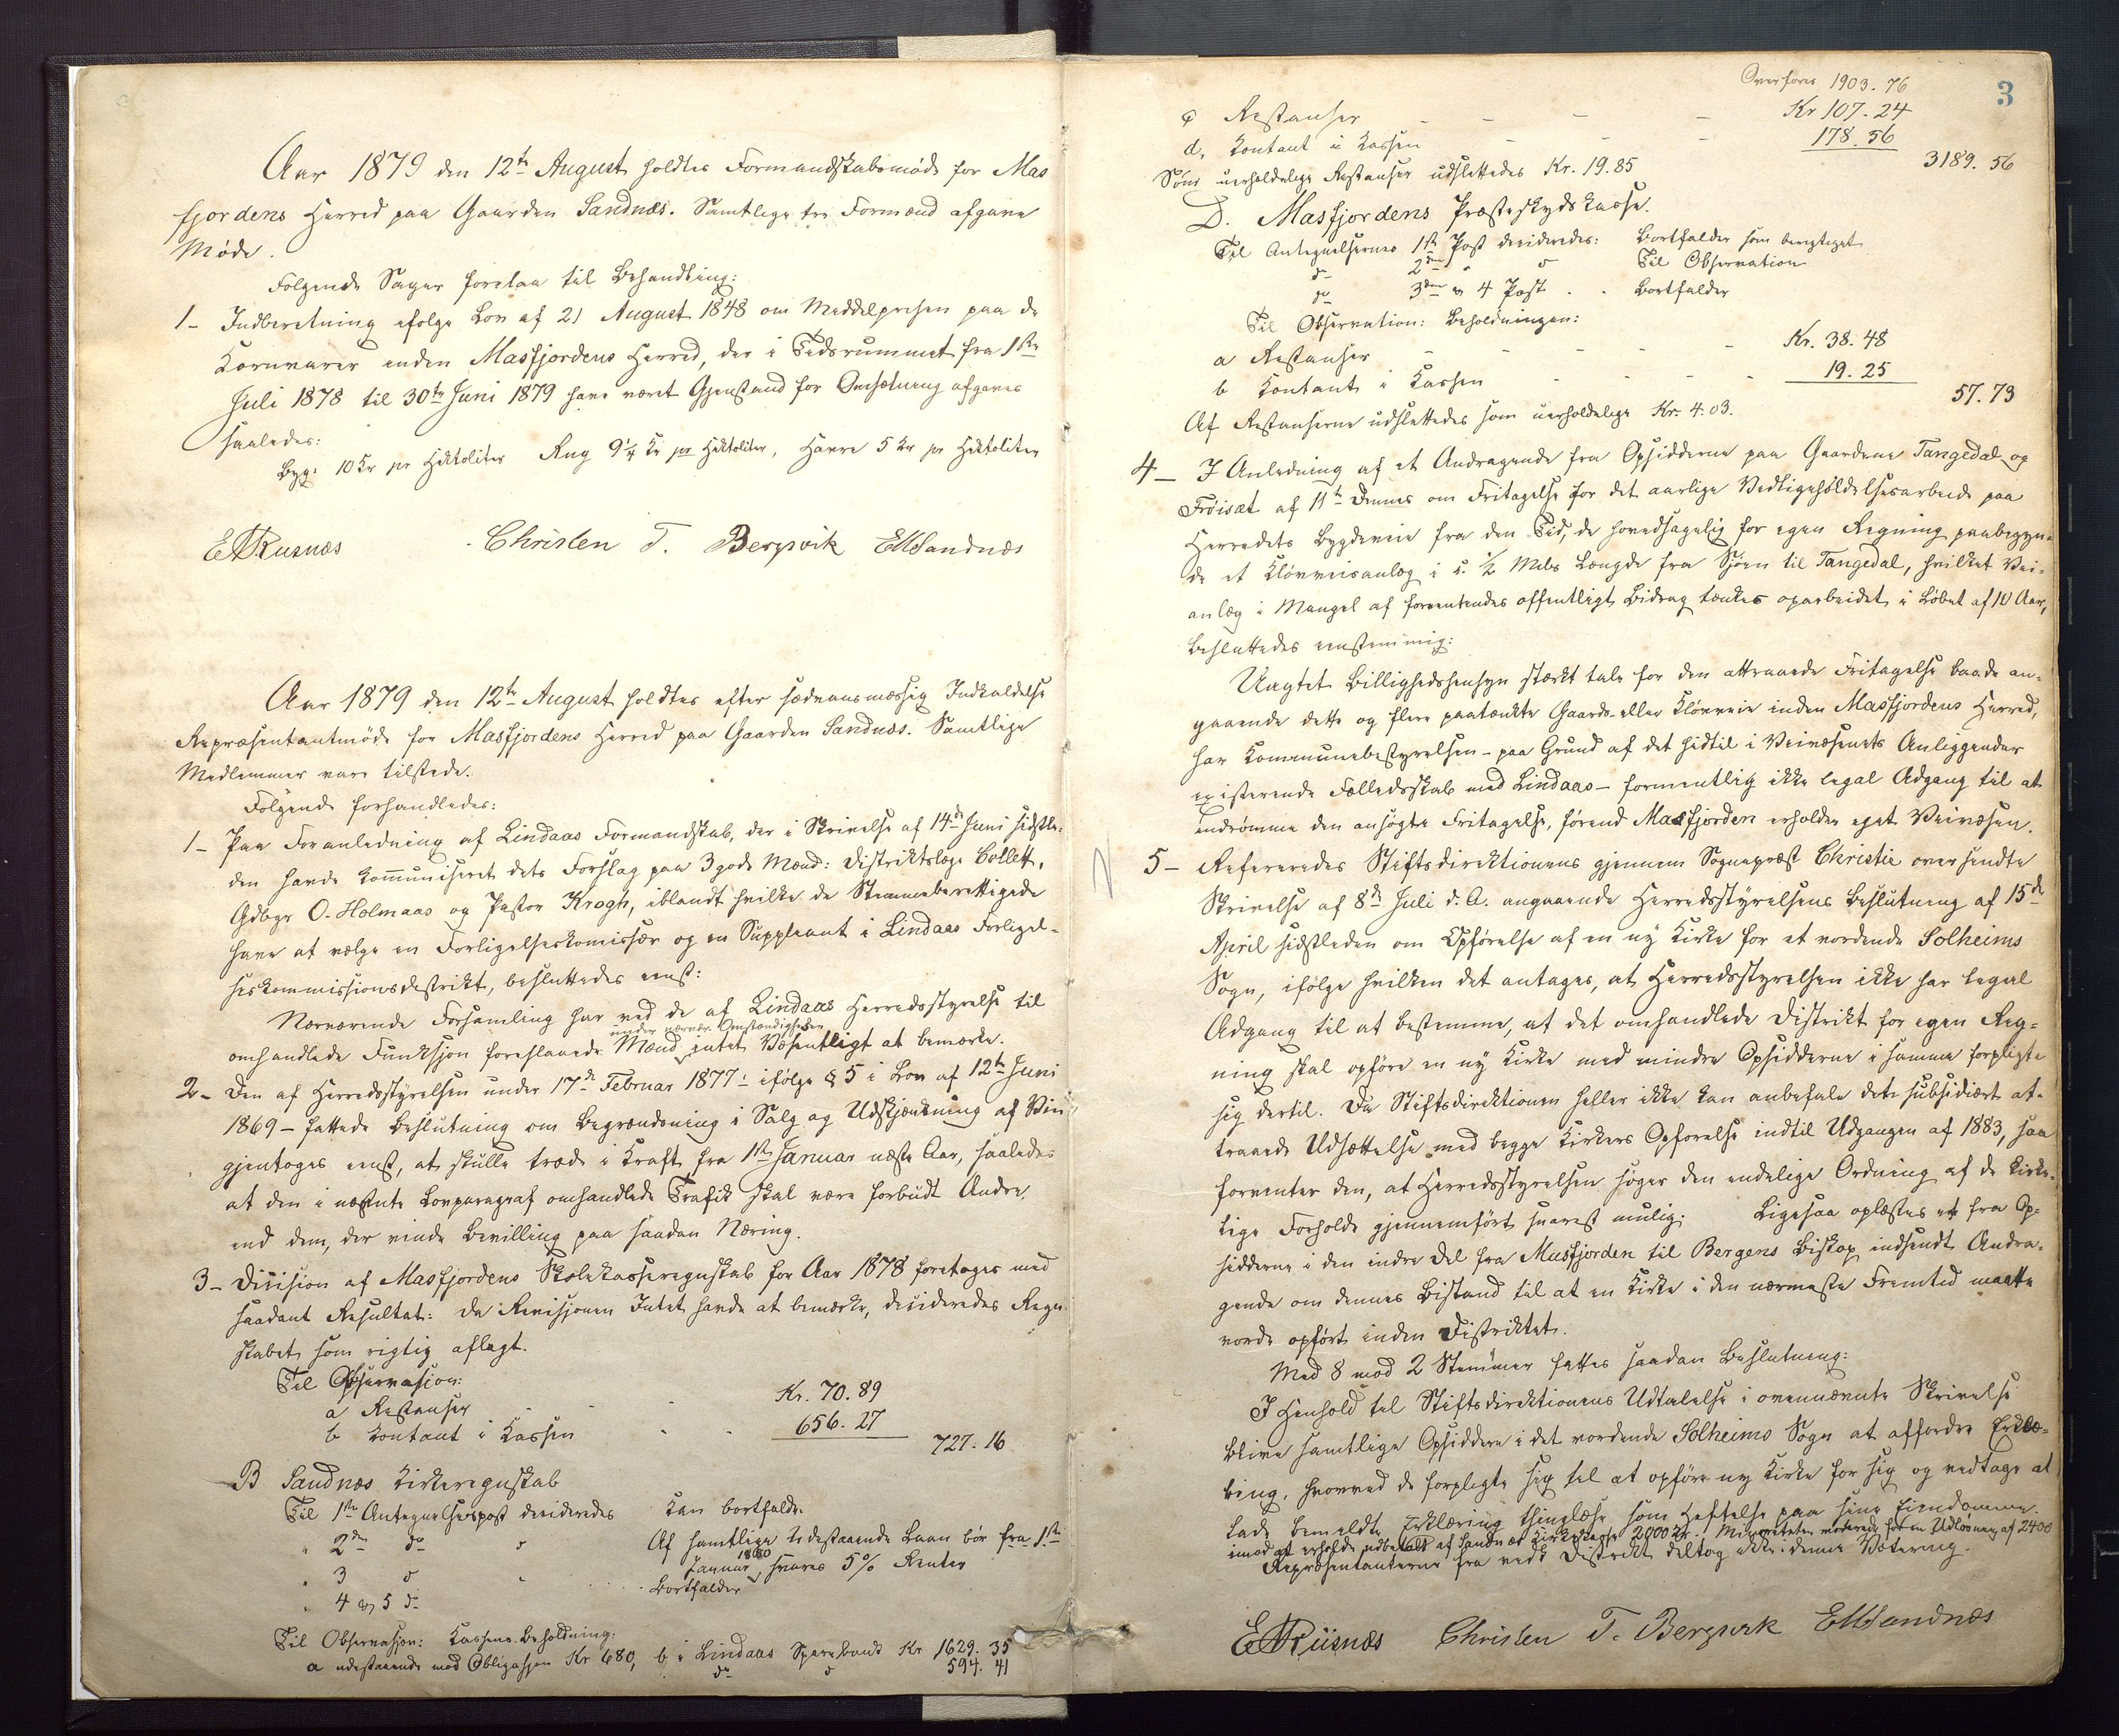 Aar 1879 den 12te August holdtes Formandskabsmøde for Mas
fjordens Herred paa Gaarden Sandnæs. Samtlige tre Formænd afgave
Møde.
Følgende Sager foretaa til Behandling:
1- Indberetning ifølge Lov af 21 August 1848 om Middelprisen paa de
Kornvarer inden Masfjordens Herred, der i Tidsrummet fra 1ste
Juli 1878 til 30te Juni 1879 have været Gjenstand for Omsætning afgaves
saaledes:
Byg: 10 Kr pr Hektoliter Rug 9 1/4 Kr pr Hektoliter, Havre 5 Kr pr Hektoliter
Christen T. Bergsvik EMSandnæs
Aar 1879 den 12te August holdtes efter sædvansmæssig Indkaldelse
Repræsentantmøde for Masfjordens Herred paa Gaarden Sandnæs. Samtlige
Medlemmer vare tilstede.
Følgende forhandledes:
1- Paa Foranledning af Lindaas Formandskab, der i Skrivelse af 14de Juni sidstle-
den havde kommuniseret dets Forslag paa 3 gode Mænd: Distriktslæge Collett,
Gdbgr O. Holmaas og Pastor Krogh, iblandt hvilke de Stemmeberettigede
have at vælge en Forligelseskomissær og en Suppleant i Lindaas Forligel-
seskommissionsdistrikt, besluttedes enst:
Nærværende Forsamling har ved de af Lindaas Herredsstyrelse til
under nærvær. Omstændigheder
omhandlede Funksjon foreslaaede Mænd intet Væsentligt at bemærke.
2- Den af Herredsstyrelsen under 17de Februar 1877 - ifølge § 5 i Lov af 12te Juni
1869 - fattede Beslutning om Begrændsning i Salg og Udskjænkning af Vin
gjentoges enst, at skulle træde i Kraft fra 1ste Januar næste Aar, saaledes
at den i nævnte Lovparagraf omhandlede Trafik skal være forbudt Andre,
end dem, der vinde Bevilling paa saadan Næring.
3- Desision af Masfjordens Skolekasseregnskab for Aar 1878 foretoges med
saadant Resultat: Da Revisjonen Intet havde at bemærke, desideredes Regn-
skabet som rigtig aflagt.
Til Observasjon:
a Restanser - - Kr. 70.89
b Kontant i Kassen - - 656.27
727.16
B Sandnæs Kirkeregnskab
Til 1ste Antegnelsespost desideredes Kan bortfalde.
" 2den do " Af samtlige udestaaende Laan bør fra 1ste
" 3 " " Januar 1880 svares 5% Renter
" 4 og 5 do Bortfalder
Til Observasjon: Kassens Beholdning:
a udestaaende mod Obligasjon Kr 680, b i Lindaas Sparebank Kr 1629.35
do " 594.41
Overføres 1903.76
3
c Restanser - - - - Kr 107.24
d, Kontant i Kassen - - - 178.56
3189.56
Som uerholdelige Restanser udslettedes Kr. 19.85
D. Masfjordens Præsteskydskasse.
Til Antegnelsernes 1ste Post desideredes: Bortfalder som berigtiget
do 2den " " Til Observation
do 3die og 4 Post . . Bortfalder
Til Observation: Beholdningen:
a Restanser - - - - Kr. 38.48
b Kontant i Kassen - - - 19.25
57.73
Af Restanserne udslettedes som uerholdelige Kr. 4.03.
4- I Anledning af et Andragende fra Opsidderne paa Gaardene Tangedal og
Frøisæt af 11te Dennes om Fritagelse for det aarlige Vedligeholdelsesarbeide paa
Herredets Bygdeveie fra den Tid, de hovedsagelig for egen Regning paabegyn-
de et Kløvveisanlæg i c. 1/2 Mils Længde fra Sjøen til Tangedal, hvilket Vei-
anlæg i Mangel af forventendes offentligt Bidrag tænkes oparbeidet i Løbet af 10 Aar,
besluttedes enstemmig:
Uagtet Billighedshensyn stærkt tale for den attraaede Fritagelse baade an-
gaaende dette og flere paatænkte Gaards- eller Kløvveie inden Masfjordens Herred,
har Kommunebestyrelsen - paa Grund af det hidtil i Veivæsenets Anliggender
existerende Fælledsskab med Lindaas - formentlig ikke legal Adgang til at
indrømme den ansøgte Fritagelse, førend Masfjorden erholder eget Veivæsen.
5- Refereredes Stiftsdirektionens gjennem Sognepræst Christie oversendte
Skrivelse af 8de Juli d. A. angaaende Herredsstyrelsens Beslutning af 15de
April sidstleden om Opførelse af en ny Kirke for et vordende Solheims
Sogn, ifølge hvilken det antages, at Herredsstyrelsen ikke har legal
Adgang til at bestemme, at det omhandlede Distrikt for egen Reg-
ning skal opføre en ny Kirke med mindre Opsidderne i samme forpligte
sig dertil. Da Stiftsdirektionen heller ikke kan anbefale dets subsidiært at-
traaede Udsættelse med begge Kirkers Opførelse indtil Udgangen af 1883, saa
forventer den, at Herredsstyrelsen søger den endelige Ordning af de kirke-
lige Forholde gjennemført snarest mulig. Ligesaa oplæstes et fra Op-
sidderne i den indre Del fra Masfjorden til Bergens Biskop indsendt Andra-
gende om dennes Bistand til at en Kirke i den nærmeste Fremtid maatte
vorde opført inden Distriktet.
Med 8 mod 2 Stemmer fattes saadan Beslutning:
I Henhold til Stiftsdirektionens Udtalelse i ovennævnte Skrivelse
blive samtlige Opsiddere i det vordende Solheims Sogn at affordre Erklæ-
ring, hvorved de forpligte sig til at opføre ny Kirke for sig og vedtage at
lade bemeldte Erklæring thinglæse som Heftelse paa sine Eiendomme
imod at erholde udbetalt af Sandnæs Kirkekasse 2000 Kr. Minoriteten voterede for en Udløsning af 2400
Repræsentanterne fra vedk Distrikt deltog ikke i denne Votering.
Christen T. Bergsvik EMSandnæs